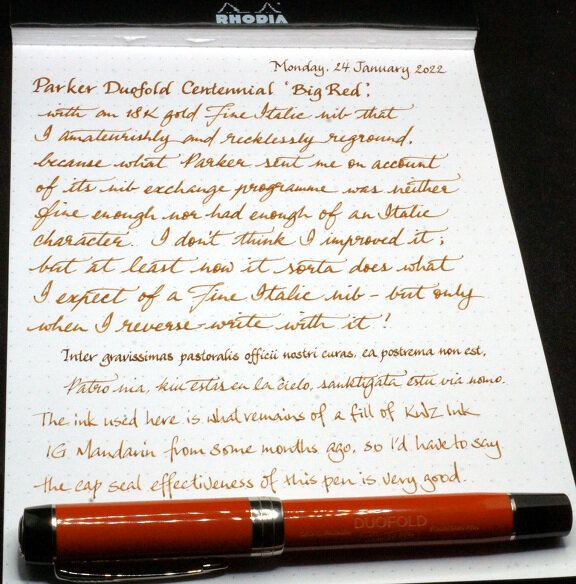 RHODIA
Monday, 24 January 2022
Parker Duofold Centennial "Big Red",
with an 18K gold Fine Italic nib that
I amateurishly and recklessly reground,
because what Parker sent me on account
of its nib exchange programme was neither
fine enough nor had enough of an Italic
character. I don't think I improved it;
but at least now it sorta does what
I expect of a Fine Italic nib – but only
when I reverse-write with it!
Inter gravissimas pastoralis officii nostri curas, ea postrema non est,
Patro nia, kiu estas en la cielo, sanktigata estu via nomo.
The ink used here is what remains of a fill of KWZ Ink
IG Mandarin from some months ago, so I'd have to say
the cap seal effectiveness of this pen is very good.
DUOFOLD